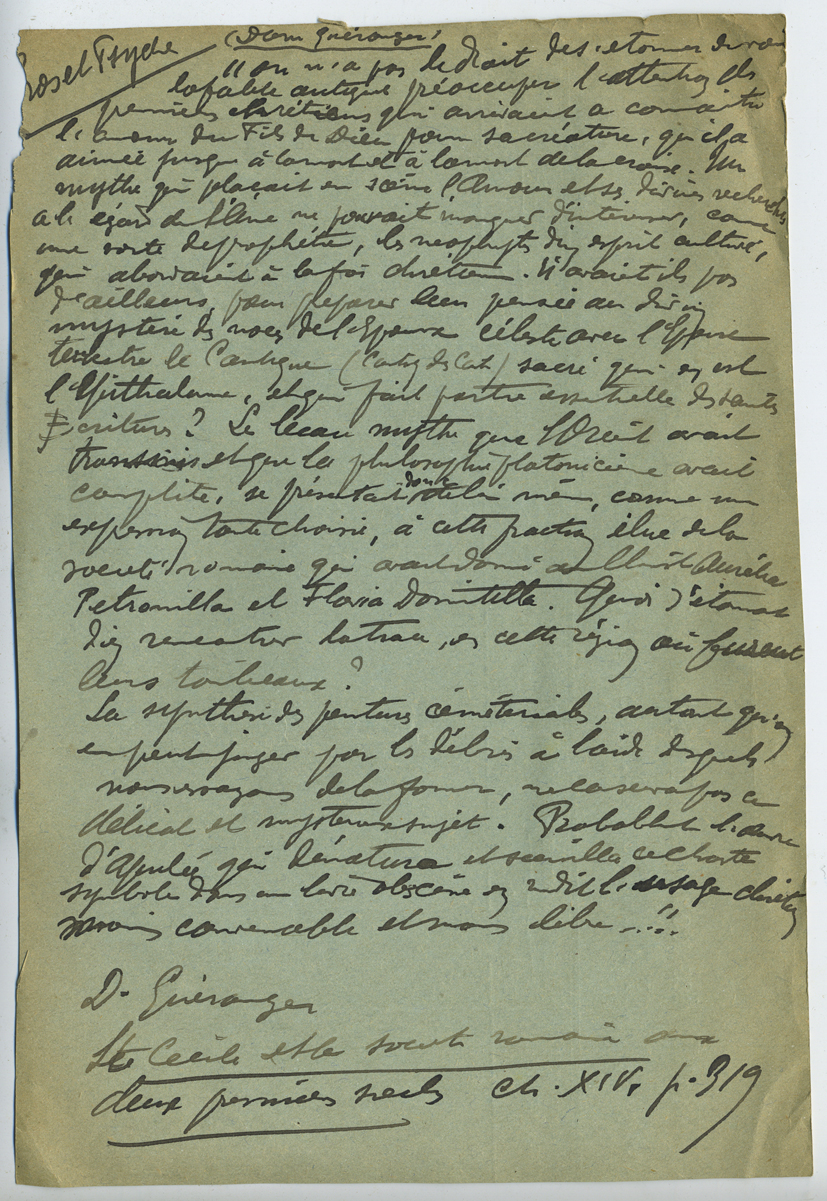 Eros et Psyche (Dom Guéranger)
"On n'a pas le droit de s'étonner de voir
la fable antique préoccuper l'attention des
premiers chrétiens qui arrivaient à connaître
l'amour du Fils de Dieu pour sa créature, qu'il a
aimée jusqu'à la mort et à la mort de la croix. Un
mythe qui plaçait en scène l'Amour et ses divines recherches
à l'égard de l'Âme ne pouvait manquer d'intéresser, comme
une sorte de prophétie, les néophytes d'un esprit cultivé,
qui abordaient à la foi chrétienne. N'avaient ils pas
d'ailleurs, pour préparer leur pensée au divin
mystère des noces de l'Epoux céleste avec l'Epouse
terrestre le Cantique (Cantiq des Cant) sacré qui en est
l'Epithalame, et qui fait partie essentielle des saintes
Ecritures? Le beau mythe que l'Orient avait
transmis et que la philosophie platonicienne avait
complété, se présentait donc de lui même, comme un
expression toute choisie, à cette fraction élue de la
société romaine qui avait donné au Christ Aurélia
Petronilla et Flavia Domitilla. Quoi d'étonnant
d'en rencontrer la trace, en cette région où furent
leurs tombeaux?
La synthèse des peintures cémétériales, autant qu'on
en peut juger par les débris à l'aide desquels
nous essayons de la former, ne laissera pas ce
délicat et mystérieux sujet. Probablt l'œuvre
d'Apulée qui dénatura et souilla ce chaste
symbole dans un livre obscène en rendit l'usage chrétien
moins convenable et moins libre ...!!.
D. Guéranger
Ste Cecile et la société romaine aux
deux premiers siecles ch. XIV. p. 319